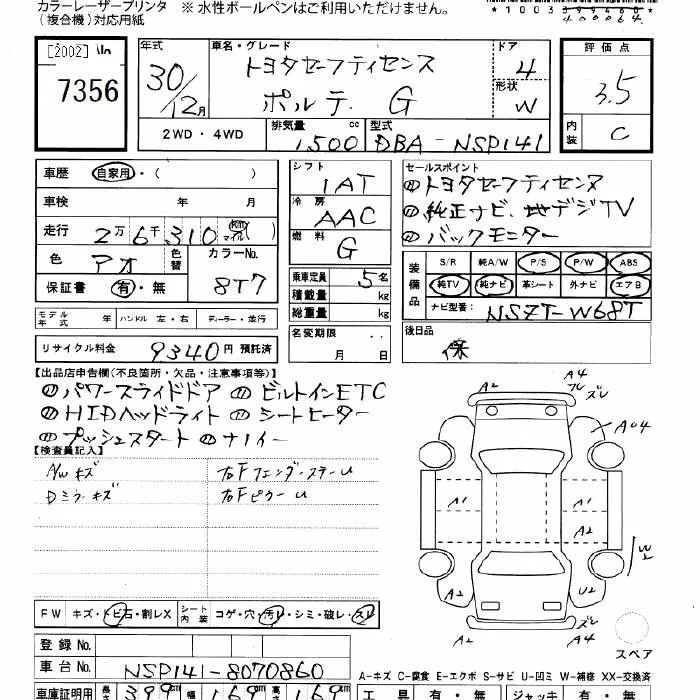 カラーレーザープリンタ ※ 水性ボールペンはご利用いただけません。
(複合機)対応用紙
*1003
400064
[2002]
7356
年式
30/12月
車名・グレード
トヨタセーフティセンス
ポルテ G
ドア
4
形状
W
評価点
3.5
内装
C
2WD・4WD
排気量 cc
1500
型式
DBA-NSP141
車歴 自家用・( )
車検 年 月
走行 2万6千310 km マイル
色 アオ 色替
カラーNo.
8T7
保証書 有・無
シフト
1AT
冷房
AAC
燃料
G
乗車定員 5名
積載量 kg
総重量 kg
名変期限 ・・
月 日
セールスポイント
トヨタセーフティセンス
純正ナビ、地デジTV
バックモニター
装備品
S/R 純A/W P/S P/W ABS
純TV 純ナビ 革シート 外ナビ エアB
ナビ型番: NSZT-W68T
後日品
保
モデル年式 年 ハンドル 左・右 ディーラー・並行
リサイクル料金 9340円 預託済
【出品店申告欄(不良箇所・欠品・注意事項等)】
パワースライドドア ビルトインETC
HIDヘッドライト シートヒーター
プッシュスタート ナノイー
【検査員記入】
A/Wキズ 右FフェンダーステーU
Dミラーキズ 右FピラーU
A2
A4
ズレ
A04
A1
A1
A2
W2
A2
U2
ズレ
A4
スペア
FW キズ・トビ石・割レX
シート内装 コゲ・穴・汚レ・シミ・破レ・スレ
登録No.
車台No. NSP141-8070860
A-キズ C-腐食 E-エクボ S-サビ U-凹ミ W-補修 XX-交換済
車庫証明用 長さ 399cm 幅 169cm 高さ 169cm
工具 有・無 ジャッキ 有・無